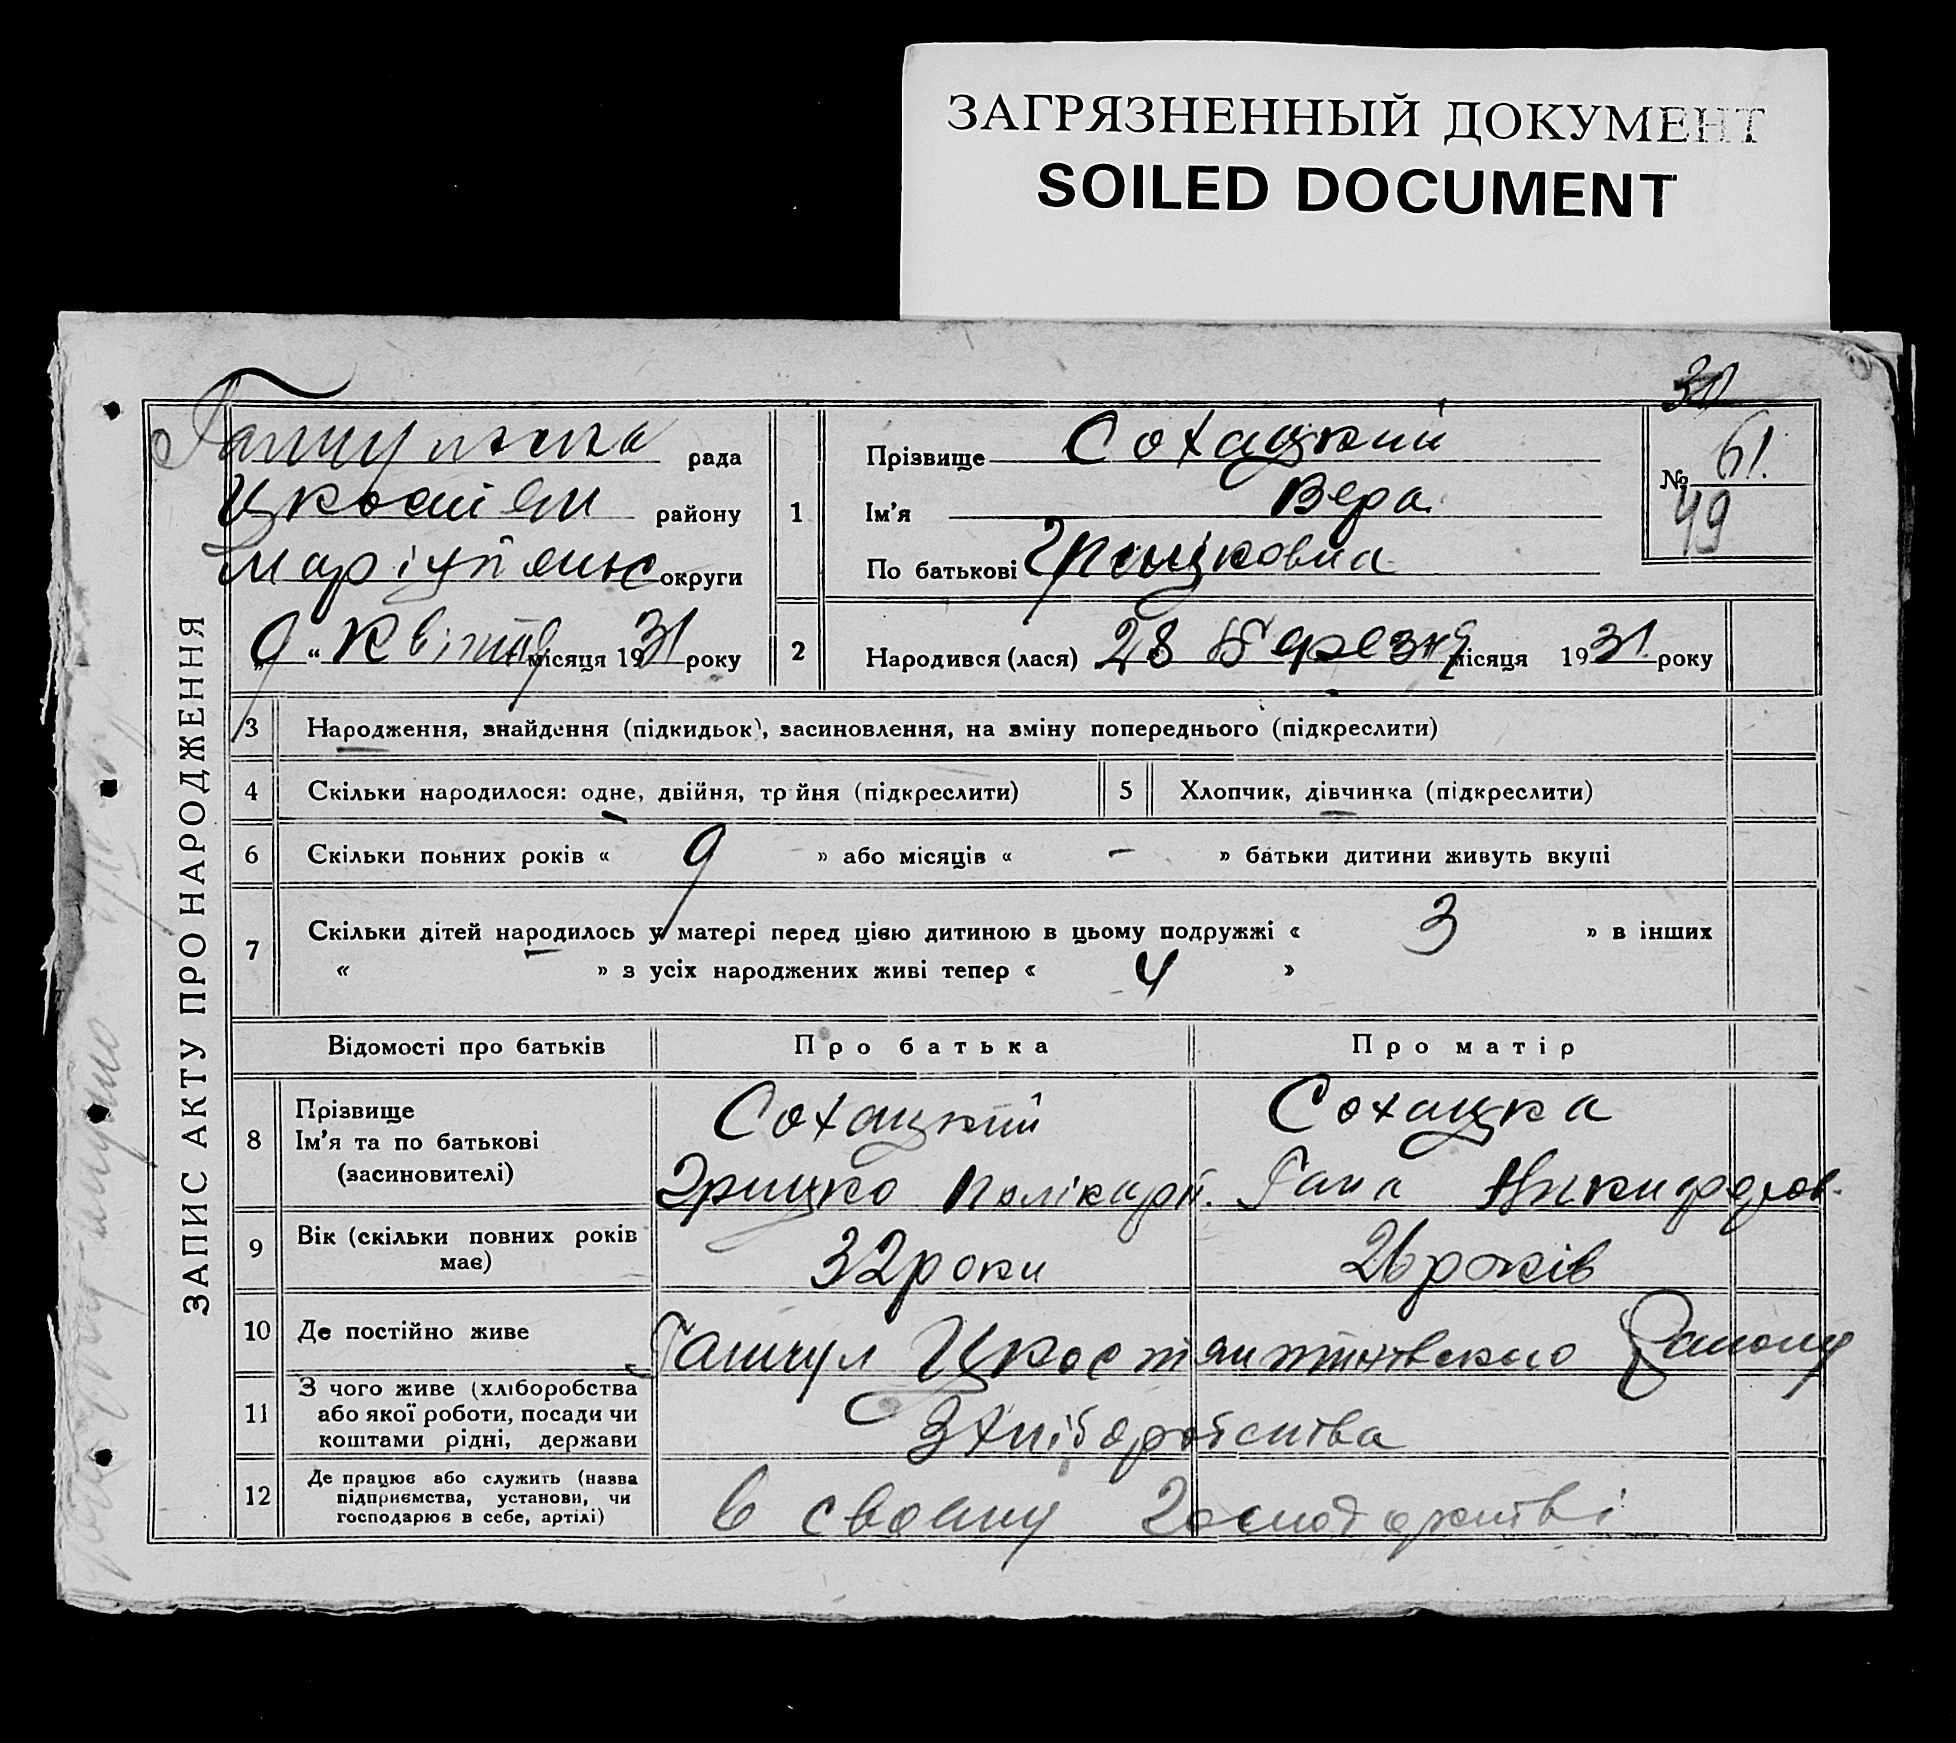 ЗАГРЯЗНЕННЫЙ ДОКУМЕНТ
SOILED DOCUMENT
ЗАПИС АКТУ ПРО НАРОДЖЕННЯ
рада
району
Маріупільс округи
9 " Квітня місяця 1931 року
1
Прізвище Сохацкий
Ім'я Вера
По батькові Грицковна
№ 61.
49
2 Народився (лася) 28 Березня місяця 1931 року
3 Народження, знайдення (підкидьок), засиновлення, на зміну попереднього (підкреслити)
4 Скільки народилося: одне, двійня, трійня (підкреслити) 5 Хлопчик, дівчинка (підкреслити)
6 Скільки повних років « 9 » або місяців « - » батьки дитини живуть вкупі
7 Скільки дітей народилось у матері перед цією дитиною в цьому подружжі « 3 » в інших
« » з усіх народжених живі тепер « 4 »
Відомості про батьків Про батька Про матір
8 Прізвище Сохацкий Сохацка
Ім'я та по батькові
(засиновителі) Грицко Полікарп. Гана Никифоров.
9 Вік (скільки повних років
має) 32 роки 26 років
10 Де постійно живе Району
11 З чого живе (хліборобства
або якої роботи, посади чи
коштами рідні, держави З хліборобства
12 Де працює або служить (назва
підприємства, установи, чи
господарює в себе, артілі) в своему господарстві